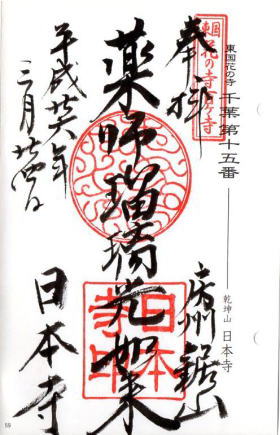 東国花の寺 千葉第十五番 乾坤山 日本寺
東国花の寺百ヶ寺
奉拝
房州鋸山
薬師瑠璃光如来
日本寺印
平成廿六年
三月廿四日
日本寺